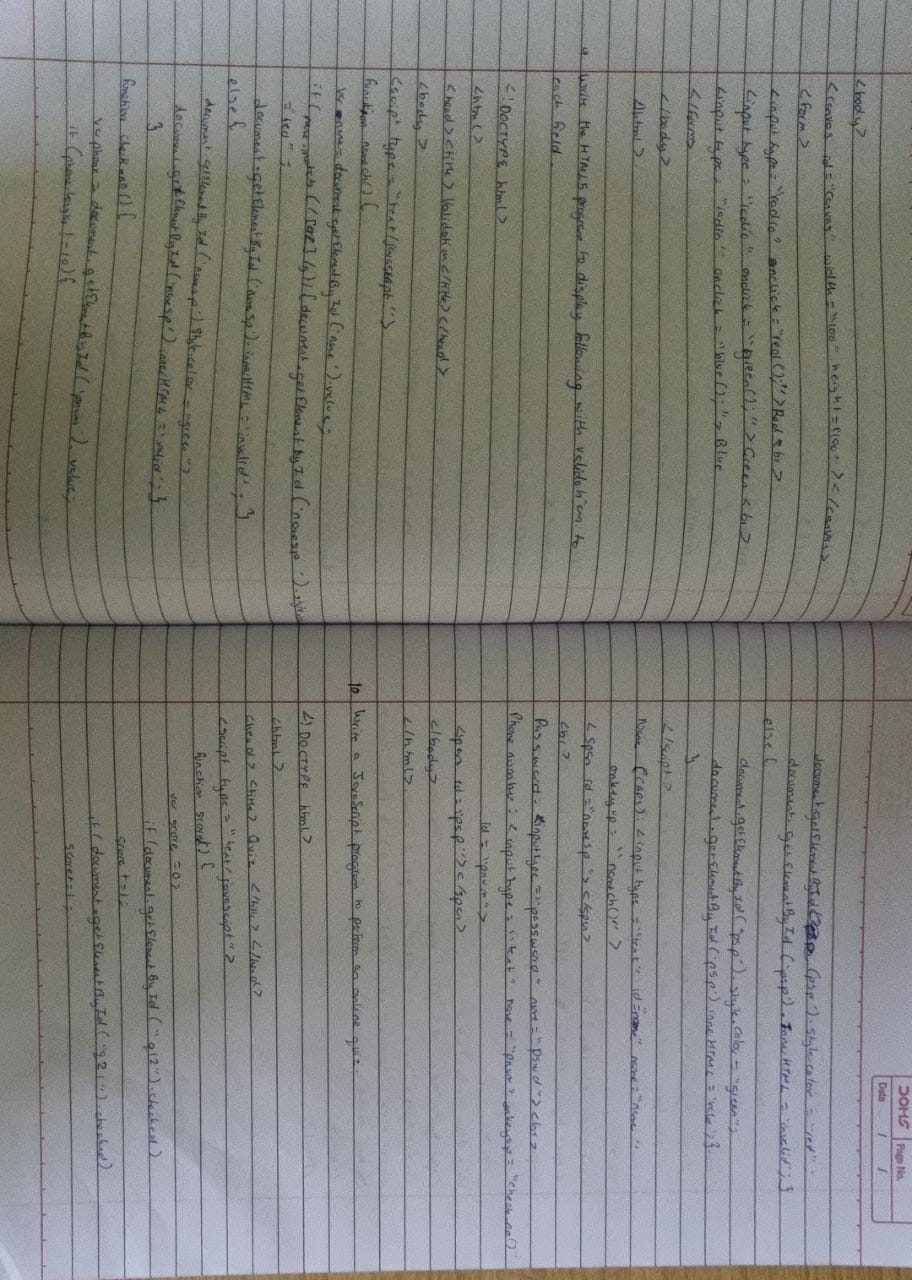 <body>
<canvas id="canvas" width="100" height="100"></canvas>
<form>
<input type="radio" onclick="red();">Red<br>
<input type="radio" onclick="green();">Green<br>
<input type="radio" onclick="blue();">Blue
</form>
</body>
</html>
9. Write the HTML5 program to display following with validation to
each field
<!DOCTYPE html>
<html>
<head><title>Validation</title></head>
<body>
<script type="text/javascript">
function namech(){
var name=document.getElementById('name').value;
if(name.match(/[a-z]/g)){document.getElementById('namesp').style
="red";
document.getElementById('namesp').innerHTML='invalid';}
else{
document.getElementById('namesp').style.color="green";
document.getElementById('namesp').innerHTML='valid';}
}
function check_no(){
var phone=document.getElementById('pnum').value;
if(phone.length!=10){
DOMS Page No.
Date / /
document.getElementById('psp').style.color="red";
document.getElementById('psp').innerHTML='invalid';}
else{
document.getElementById('psp').style.color="green";
document.getElementById('psp').innerHTML='valid';}
}
</script>
Name (CAPS):<input type="text" id="name" name="name"
onkeyup="namech()">
<span id="namesp"></span>
<br>
Password:<input type="password" name="pswd"><br>
Phone number:<input type="text" name="pnum" onkeyup="check_no()"
id="pnum">
<span id="psp"></span>
</body>
</html>
10. Write a JavaScript program to perform an online quiz.
<!DOCTYPE html>
<html>
<head><title>Quiz</title></head>
<script type="text/javascript">
function score(){
var score=0;
if(document.getElementById("q12").checked)
score+=1;
if(document.getElementById("q21").checked)
score+=1;